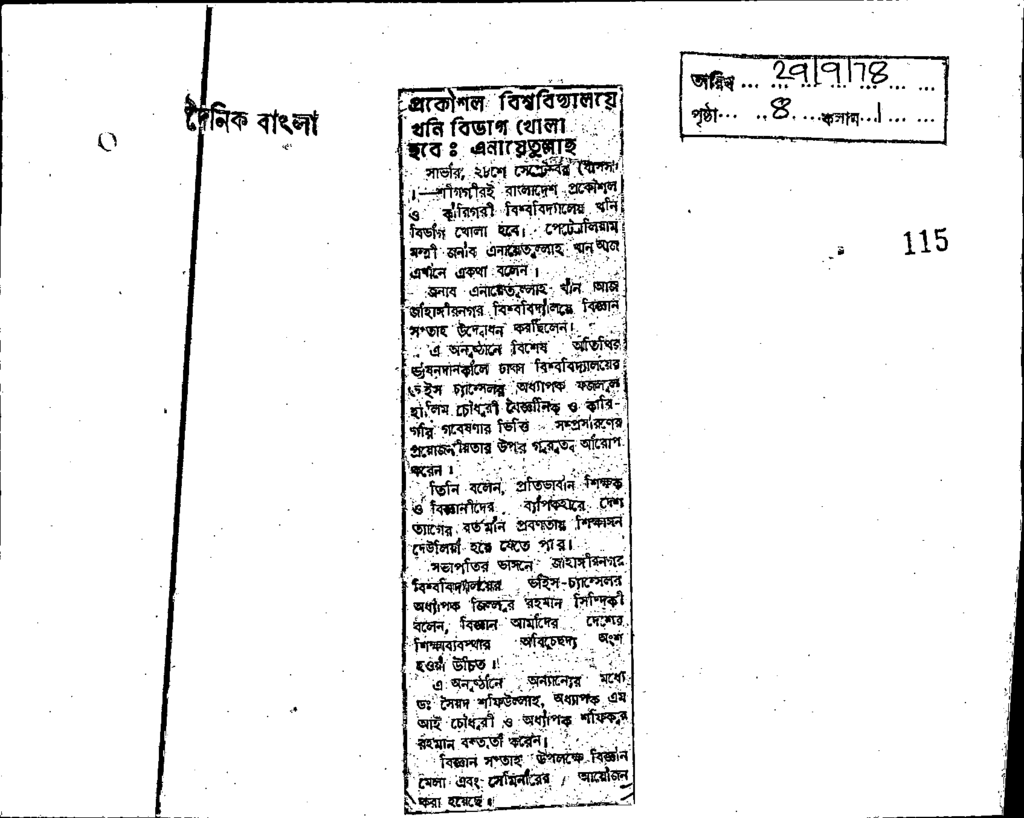 দৈনিক বাংলা
তারিখ ... 29/9/78 ... ...
পৃষ্ঠা... ..8. ...কলাম...1 ... ...
115
প্রকৌশল বিশ্ববিদ্যালয়ে
খনি বিভাগ খোলা
হবে ঃ এনায়েতুল্লাহ
সাভার, ২৮শে সেপ্টেম্বর (বাসস
।—শীগগীরই বাংলাদেশ প্রকৌশল
ও কারিগরী বিশ্ববিদ্যালয়ে খনি
বিভাগ খোলা হবে। পেট্রোলিয়াম
মন্ত্রী জনাব এনায়েতুল্লাহ খান আজ
এখানে একথা বলেন।
জনাব এনায়েতুল্লাহ খান আজ
জাহাঙ্গীরনগর বিশ্ববিদ্যালয়ে বিজ্ঞান
সপ্তাহ উদ্বোধন করছিলেন।
এ অনুষ্ঠানে বিশেষ অতিথির
ভাষনদানকালে ঢাকা বিশ্ববিদ্যালয়ের
ভাইস চ্যান্সেলর অধ্যাপক ফজলুল
হালিম চৌধুরী বৈজ্ঞানিক ও কারি-
গরি গবেষণার ভিত্তি সম্প্রসারণের
প্রয়োজনীয়তার উপর গুরুত্ব আরোপ
করেন।
তিনি বলেন, প্রতিভাবান শিক্ষক
ও বিজ্ঞানীদের ব্যাপকহারে দেশ
ত্যাগের বর্তমান প্রবণতায় শিক্ষাঙ্গন
দেউলিয়া হয়ে যেতে পারে।
সভাপতির ভাসনে জাহাঙ্গীরনগর
বিশ্ববিদ্যালয়ের ভাইস-চ্যান্সেলর
অধ্যাপক জিল্লুর রহমান সিদ্দিকী
বলেন, বিজ্ঞান আমাদের দেশের
শিক্ষাব্যবস্থার অবিচ্ছেদ্য অংশ
হওয়া উচিত।
এ অনুষ্ঠানে অন্যান্যের মধ্যে
ডঃ সৈয়দ শফিউল্লাহ, অধ্যাপক এম
আই চৌধুরী ও অধ্যাপক শফিকুর
রহমান বক্তৃতা করেন।
বিজ্ঞান সপ্তাহ উপলক্ষে বিজ্ঞান
মেলা এবং সেমিনারের আয়োজন
করা হয়েছে।